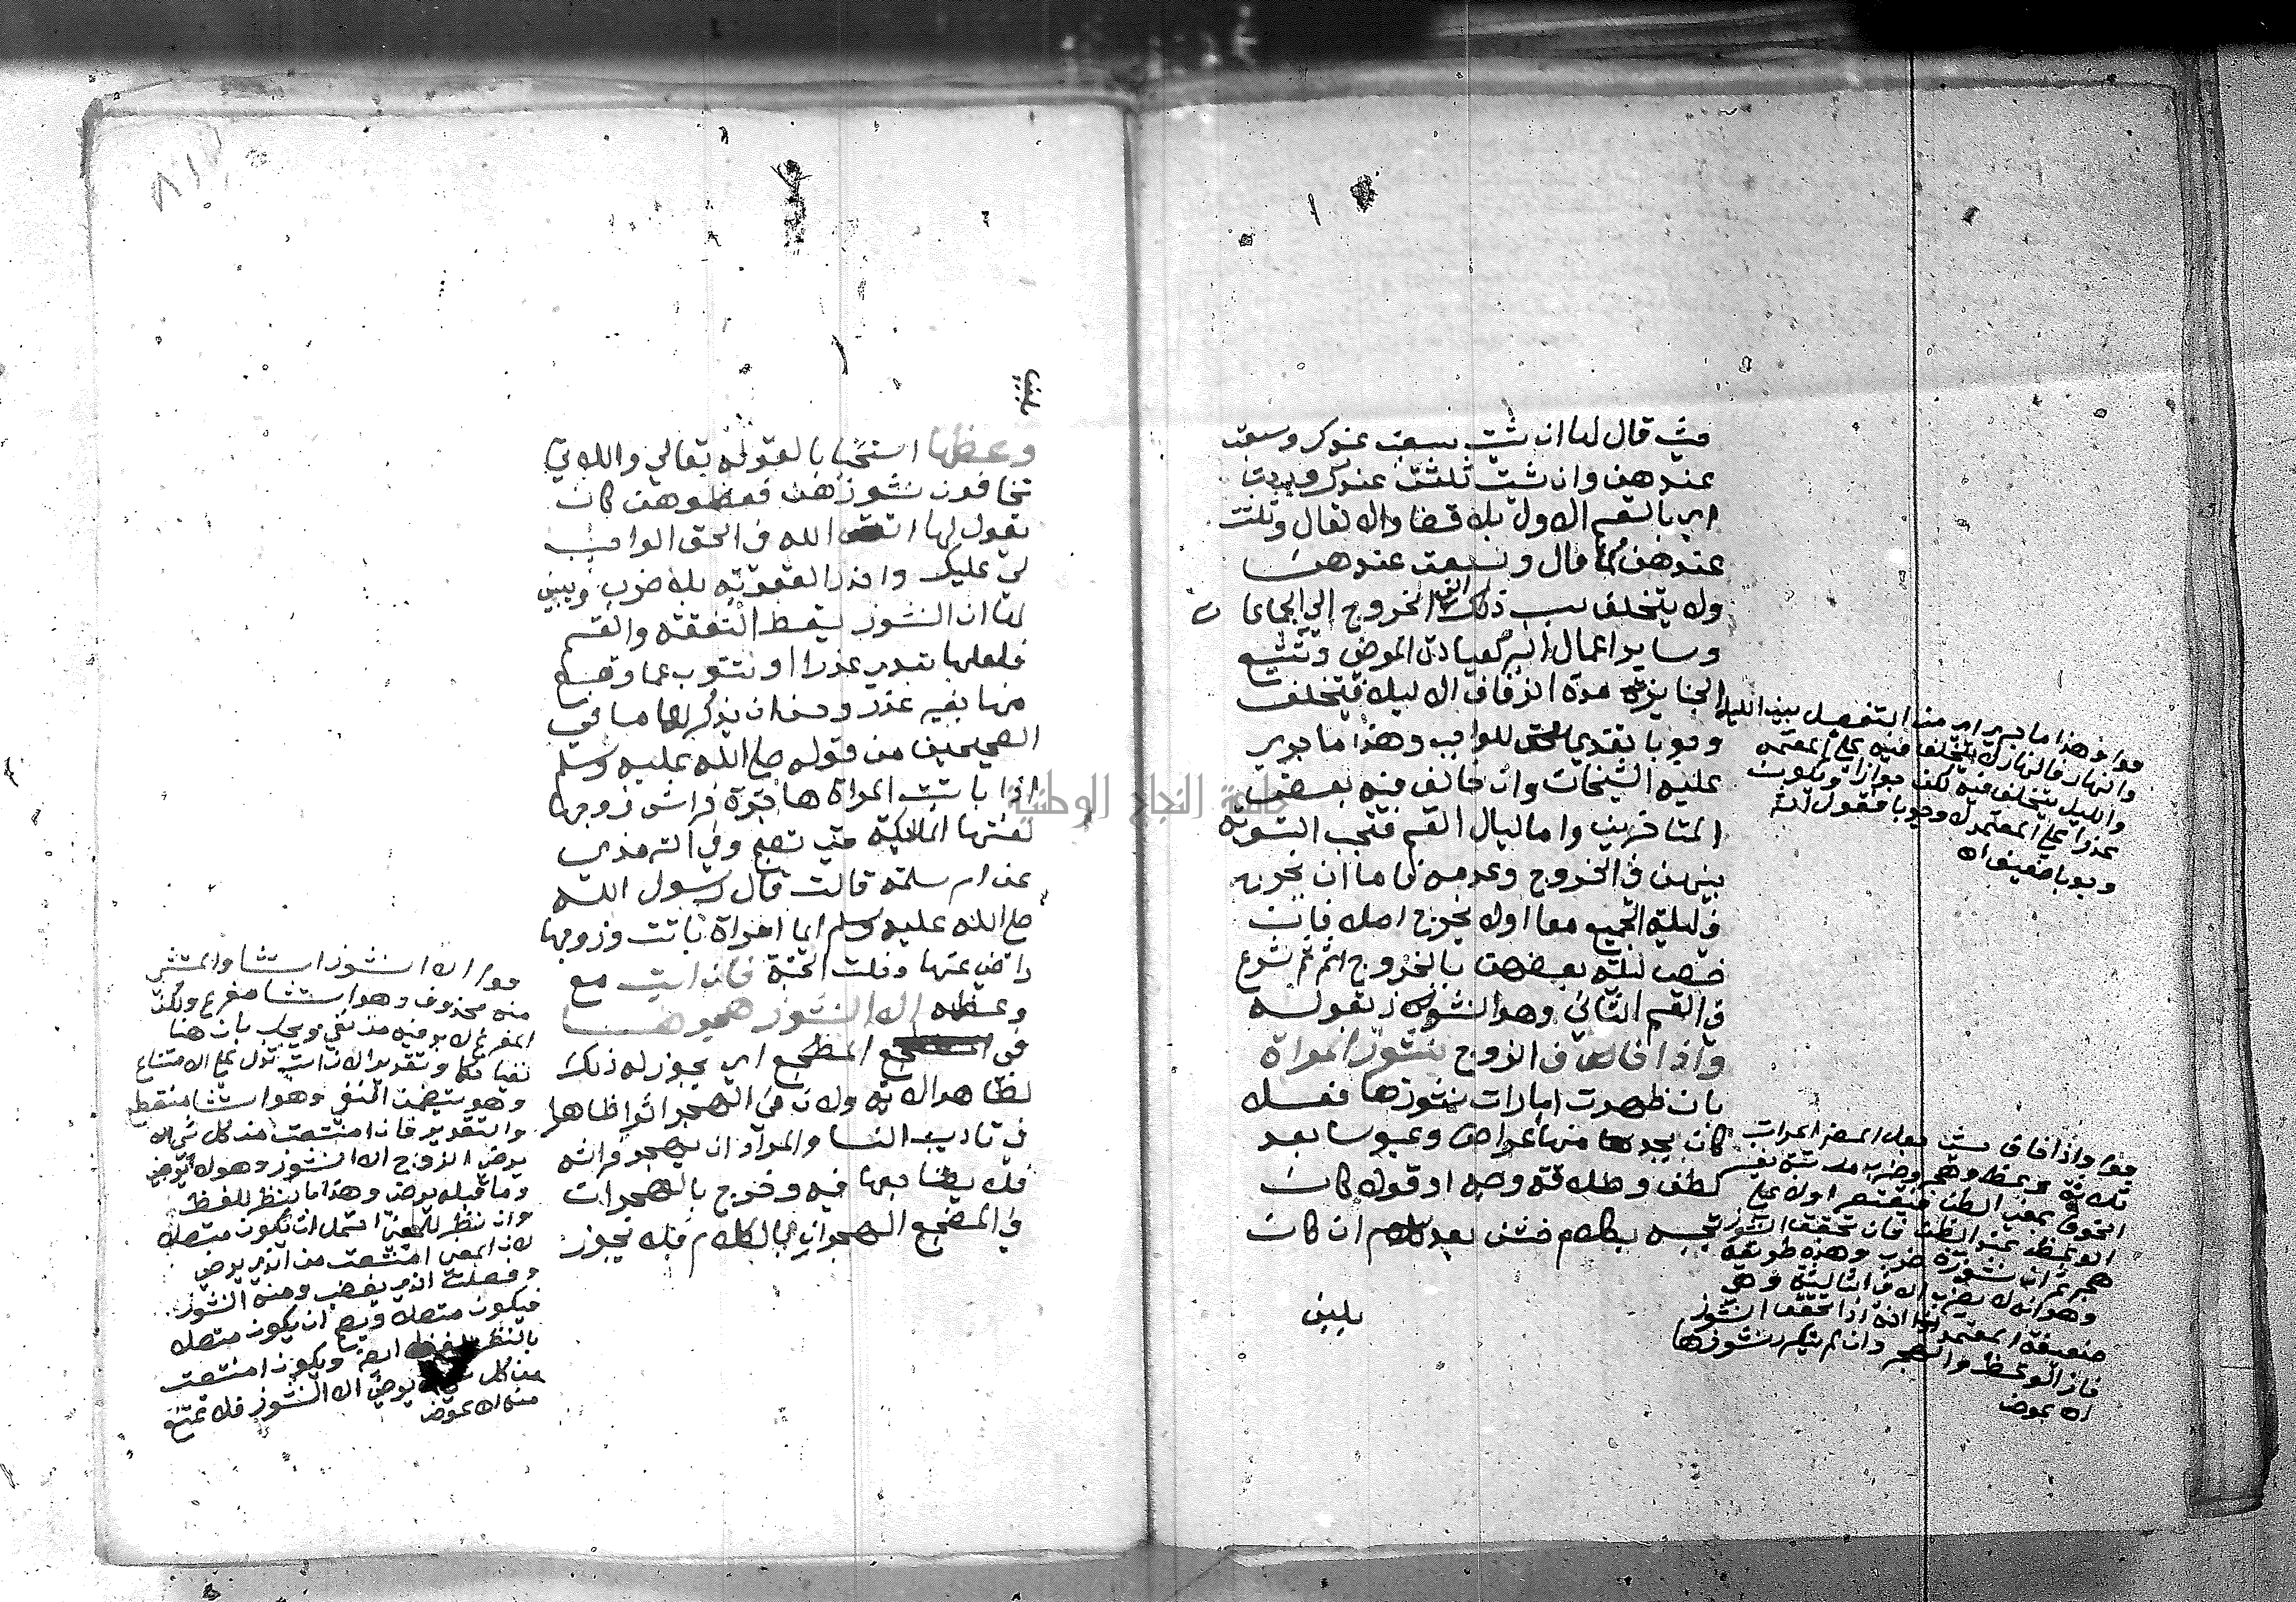 حيث قال لها ان شيت سبعت عندك وسبعت
عندهن وان شيت ثلثت عندك ودرت
اي بالقسم الاول بلا قضا والا لقال وثلثت
عندهن كما قال وسبعت عندهن
ولا يتخلف بسبب ذلك الخروج الي الجماعا ت
وساير اعمال البر كعيادة المرضي وتشييع
الجنايز مدة الزفاف الا ليلا فيتخلف
وجوبا تقديما للواجب وهذا ما جري
عليه الشيخان وان خالف فيه بعض
المتاخرين واما ليال القسم فتجب التسوية
بينهن في الخروج وعدمه فاما ان يخرج
في ليلة الجميع معا اولا يخرج اصلا فان
خص ليلة بعضهن بالخروج اثم ثم شرع
في القسم الثاني وهو النشوز بقوله
واذا خاف الزوج نشوز المراة
بان ظهرت امارات نشوزها فعلا
كان يجد منها اعراضا وعبوسا بعد
لطف وطلاقة وجه او قولا كان
تجيبه بكلام خشن بعد ان كان
بلين
والنهار فالنهار لا يتخلف فيه علي المعتمد
والليل يتخلف فيه لكن جوازا ويكون
عذرا علي المعتمد لا وجوبا فقول الشـ
وجوبا ضعيف اه
هجر ثم ان نشوزه ضرب وهذه طريقة
وهو انه لا يضرب الا في الثالثة وهي
ضعيفة المعتمد انه اذا تحقق النشوز
فاز الوعظ والهجر وان لم يتكرر نشوزها
اه عوض
بلين
وعظها استحبابا لقوله تعالي واللاتي
تخافون نشوزهن فعظوهن كان
يقول لها اتقي الله في الحق الواجب
لي عليك واحذر العقوبة بلا ضرب ويبين
لها ان النشوز يسقط النفقة والقسم
فلعلها تبدي عذرا او تتوب عما وقع
منها بغير عذر وحسن ان يذكر لها ما في
الصحيحين من قوله صلي الله عليه وسلم
اذا باتت المراة هاجرة فراش زوجها
لعنتها الملايكة حتي تصبح وفي الترمذي
عن ام سلمة قالت قال رسول الله
صلي الله عليه وسلم ايما امراة باتت وزوجها
راضي عنها دخلت الجنة فان ابت مع
وعظه الا النشوز هجرها
في المضجع اي يجوز له ذلك
لظاهر الاية ولان في الهجر اثرا ظاهرا
في تاديب النسا والمراد ان يهجر فراشه
فلا يضاجعها فيه وخرج بالهجران
في المضجع الهجران بالكلام فلا يجوز
قوله الا النشوز استثنا والمستثني
منه محذوف وهو استثنا مفرغ ولكن
المفرغ لا بد فيه من نفي ويجاب بان هنا
وهو يتضمن النفي وهو استثنا منقطع
والتقدير فان امتنعت من كل شي
يرضي الزوج الا النشوز وهو لا يرضي
وما قبله يرضي وهذا بالنظر للفظ
وان نظر للمعني احتمل ان يكون متصلا
لان المعني امتنعت من الذي يرضي
وفعلت الذي يغضب ومنه النشوز
فيكون متصلا ويصح ان يكون متصلا
ويكون امتنعت
يرضي الا النشوز فلا تمتنع
منه اه عوض
جامعة النجاح الوطنية